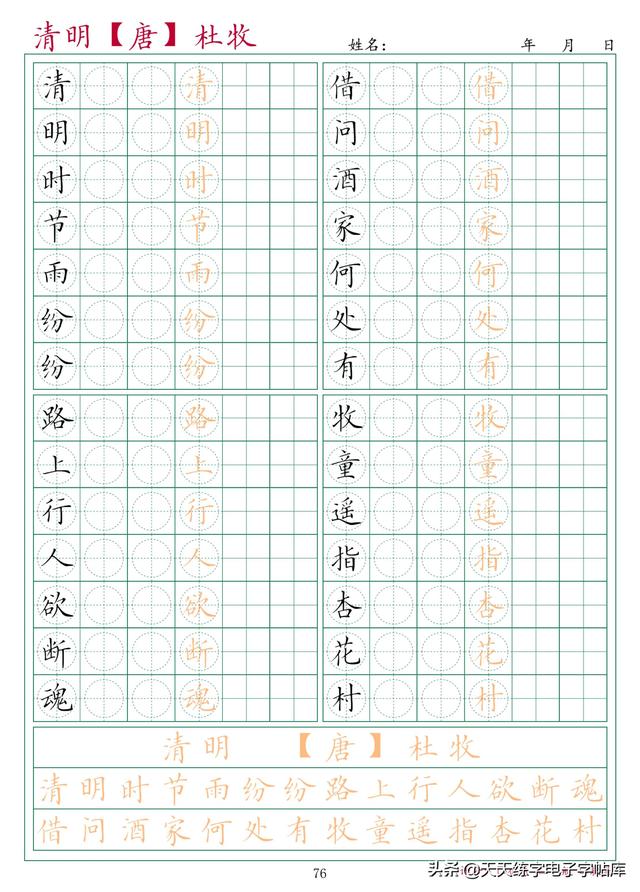 清明【唐】杜牧
姓名： 年 月 日
清 清 借 借
明 明 问 问
时 时 酒 酒
节 节 家 家
雨 雨 何 何
纷 纷 处 处
纷 纷 有 有
路 路 牧 牧
上 上 童 童
行 行 遥 遥
人 人 指 指
欲 欲 杏 杏
断 断 花 花
魂 魂 村 村
清明 【唐】杜牧
清明时节雨纷纷路上行人欲断魂
借问酒家何处有牧童遥指杏花村
76
头条@天天练字电子字帖库